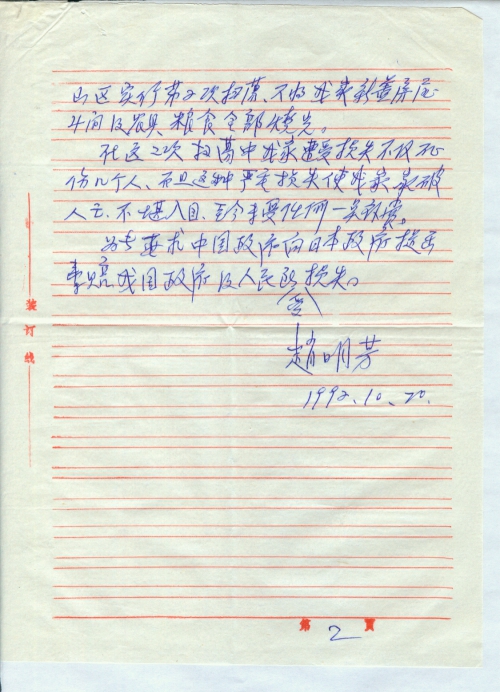 山区实行第2次扫荡、不怕我家新盖房屋
4间及农具、粮食全部烧光。
在这2次扫荡中我家遭受损失不仅死
伤几个人、而且这种严重损失使我家家破
人亡、不堪入目、至今未要任何一点赔偿。
为此要求中国政府向日本政府提出
索赔我国政府及人民的损失。
赵明芳
1992.10.20.
装订线
第2页